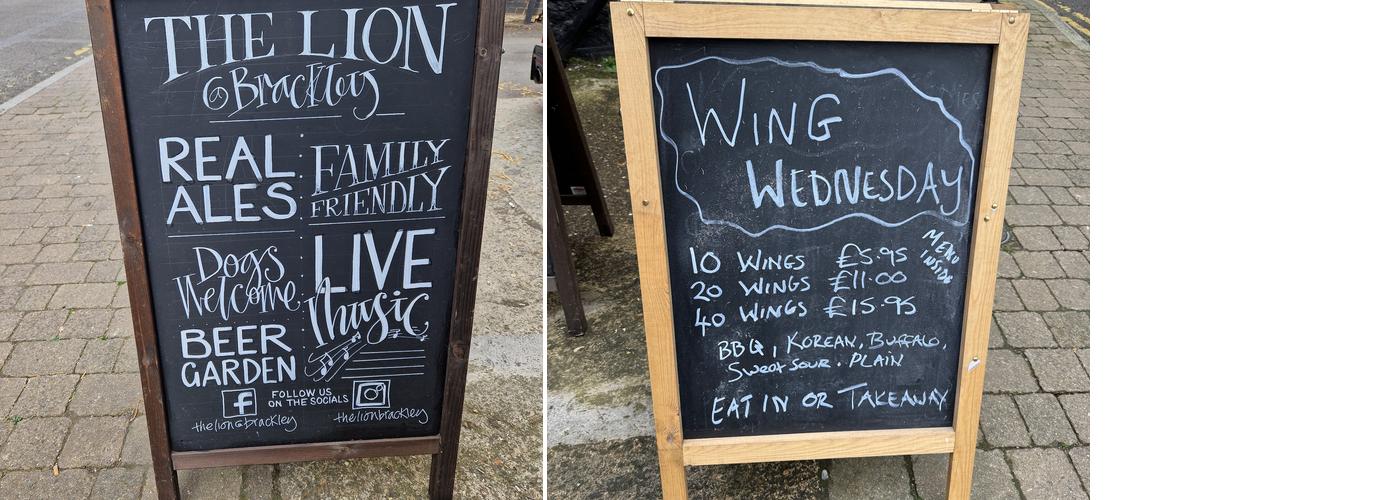 THE LION
@Brackley
REAL
ALES
FAMILY
FRIENDLY
Dogs
Welcome
LIVE
Music
BEER
GARDEN
FOLLOW US
ON THE SOCIALS
f
thelion@brackley
thelionbrackley
WING
WEDNESDAY
MENU
INSIDE
10 WINGS £5.95
20 WINGS £11.00
40 WINGS £15.95
BBQ, KOREAN, BUFFALO,
Sweet Sour. PLAIN
EAT IN OR TAKEAWAY